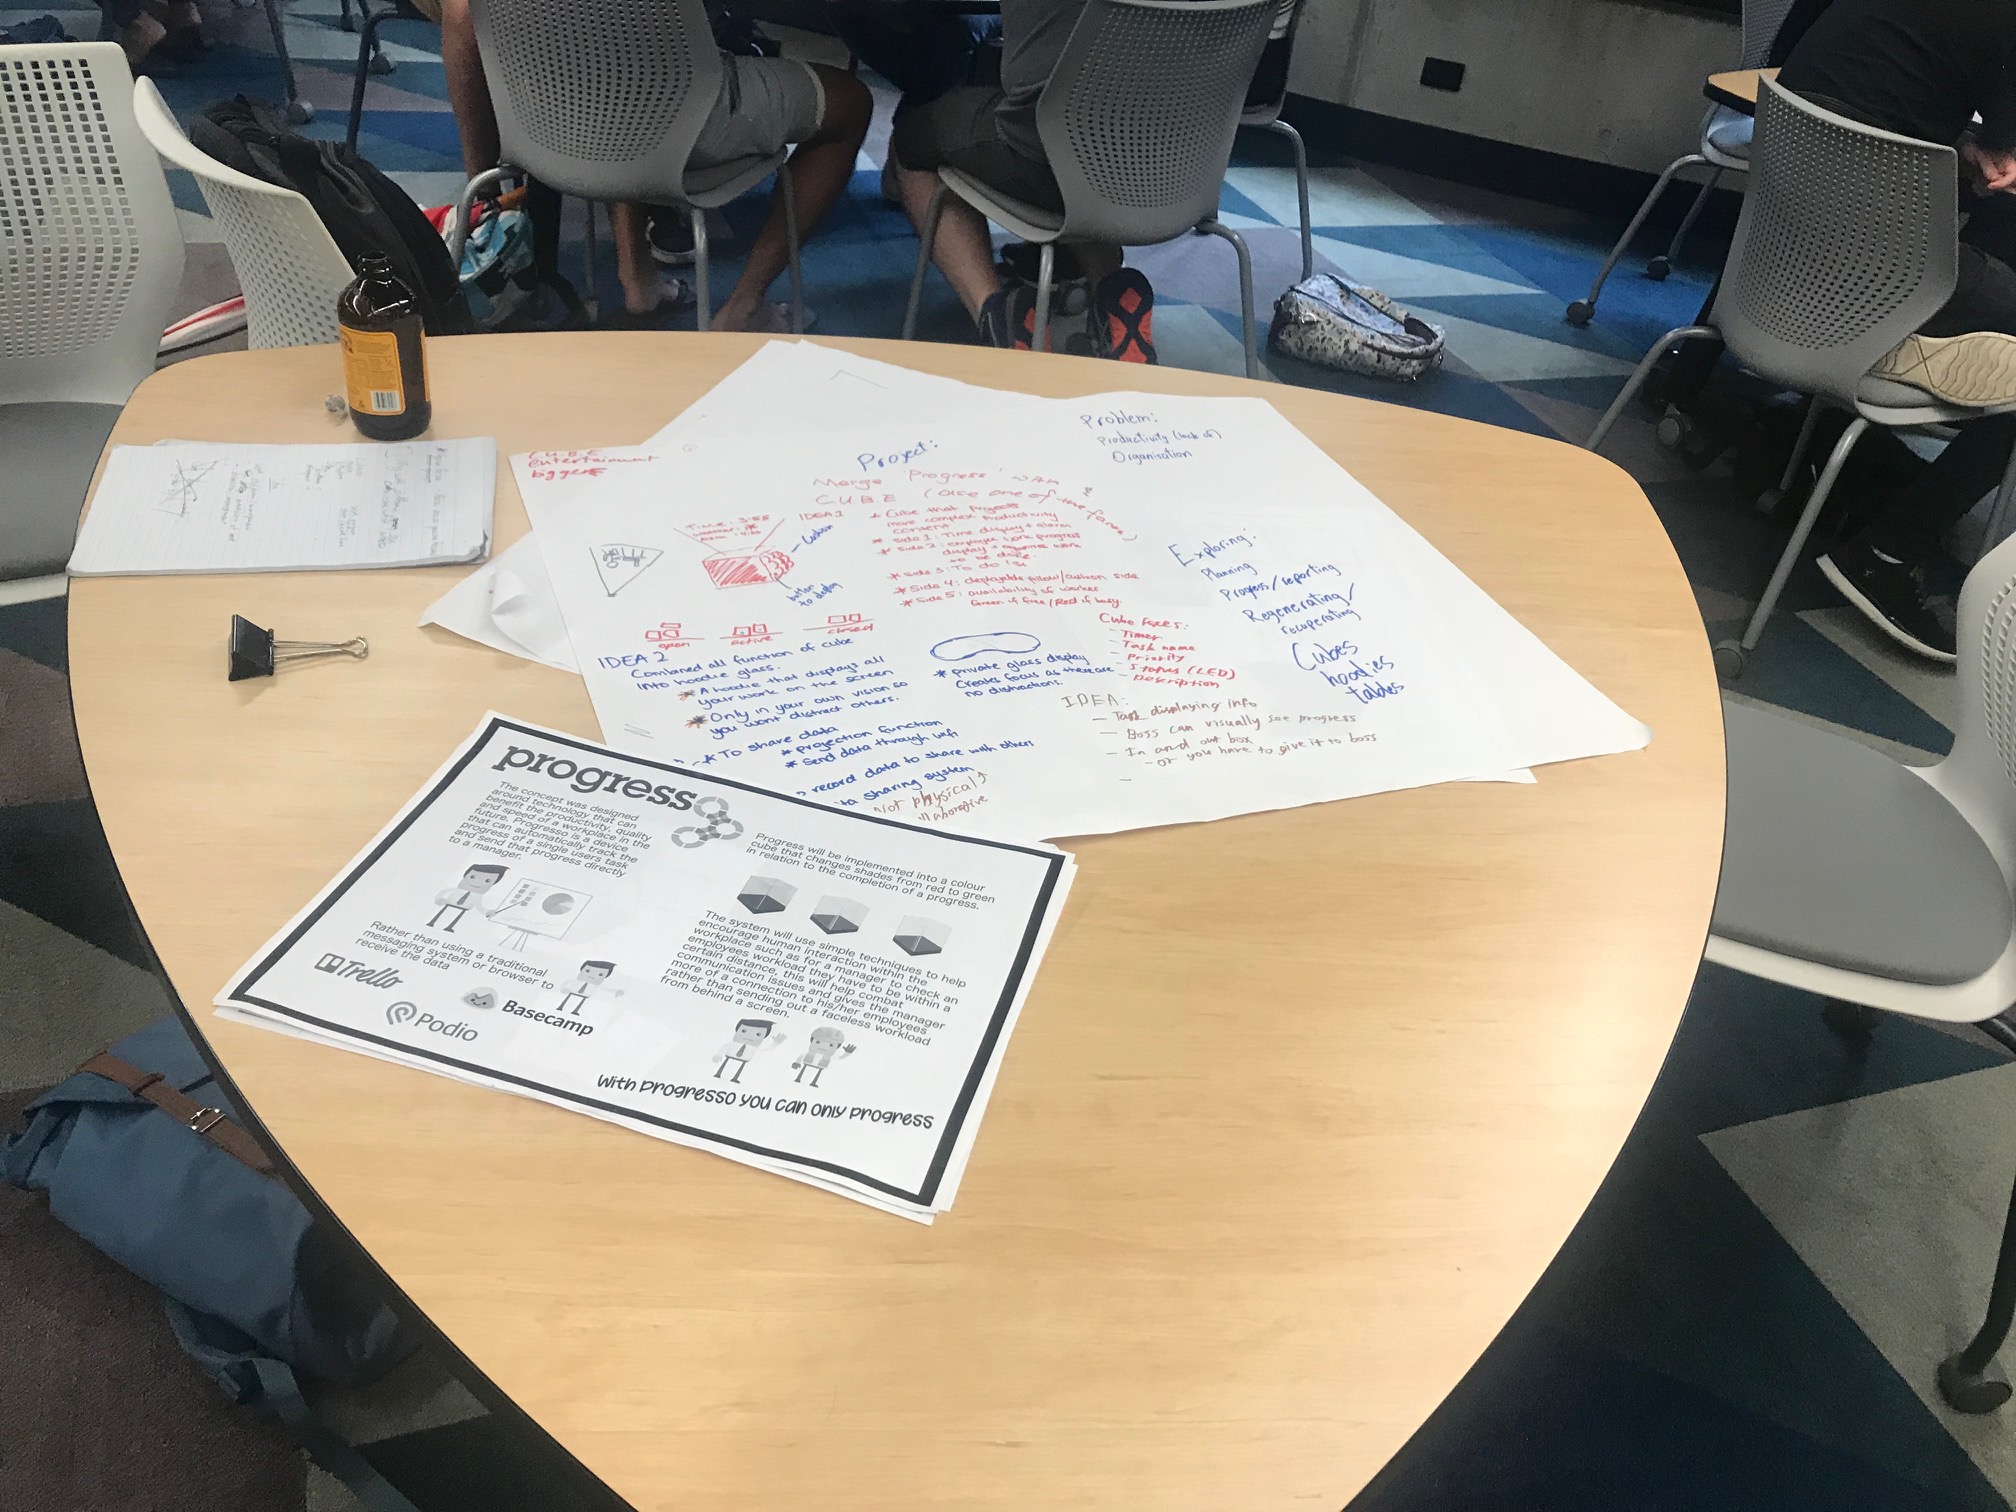 C.U.B.E
entertainment
bigger
Project:
Merge 'Progress' with
C.U.B.E (Use one of the faces)
Problem:
Productivity (lack of)
Organisation
Time: 3:55
IDEA 1
cushion
button
to deploy
* Cube that projects
more complex productivity
content
* Side 1: Time display + alarm
* Side 2: employee work progress
display +
work
to be done.
* Side 3: To do list
* Side 4: deployable pillow/cushion side
* Side 5: availability of worker
Green if free/Red if busy.
Exploring:
Planning
Progress/reporting
Regenerating/
recuperating
Cubes
hoodies
tables
open
active
closed
IDEA 2
Combined all function of cube
into hoodie glass.
* A hoodie that displays all
your work on the screen
* Only in your own vision so
you wont distract others.
* To share data
* projection function
* Send data through wifi
record data to share with others
sharing system
Not physical
* private glass display
Creates focus as there are
no distractions.
Cube faces:
- Timer
- Task name
- Priority
- Status (LED)
- Description
IDEA:
- Task displaying info
- Boss can visually see progress
- In and out box
- or you have to give it to boss
progresso
The concept was designed
around technology that can
benefit the productivity, quality
and speed of a workplace in the
future. Progresso is a device
that can automatically track the
progress of a single users task
and send that progress directly
to a manager.
Rather than using a traditional
messaging system or browser to
receive the data
Trello
Podio
Basecamp
Progress will be implemented into a colour
cube that changes shades from red to green
in relation to the completion of a progress.
The system will use simple techniques to help
encourage human interaction within the
workplace such as for a manager to check an
employees workload they have to be within a
certain distance, this will help combat
communication issues and gives the manager
more of a connection to his/her employees
rather than sending out a faceless workload
from behind a screen.
With progresso you can only progress